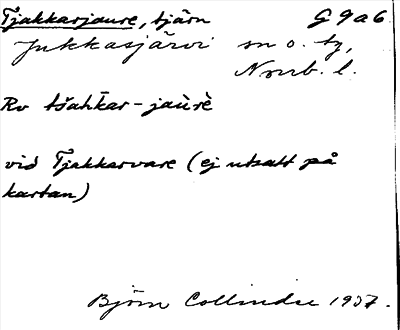 Tjakkarjaure, tjärn G 9 a 6
Jukkasjärvi sn o. tg,
Norrb. l.
Rv tšahkar-jaùrè
vid Tjakkarvare (ej utsatt på
kartan)
Björn Collinder 1937.